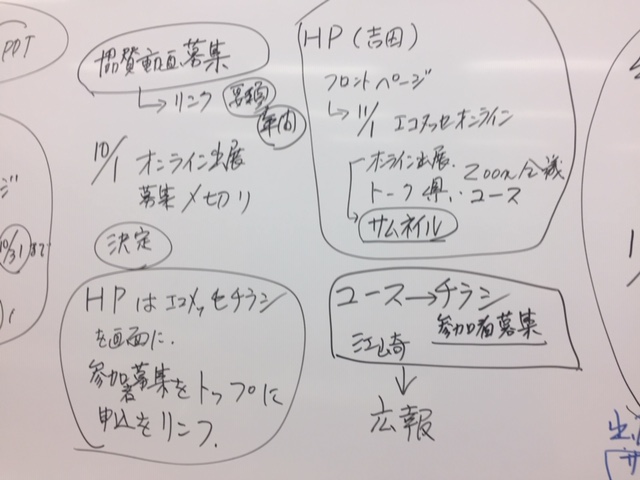 PDT
協賛動画募集
→リンク
年間
10/1 オンライン出展
募集〆切り
決定
HPはエコメッセチラシ
を画面に.
参加者募集をトップに
申込をリンク.
HP(吉田)
フロントページ
→11/1 エコメッセオンライン
オンライン出展.
Zoom会議
トーク 県,・ユース
→サムネイル
ユース→チラシ
江崎 参加者募集
↓
広報
10/31まで